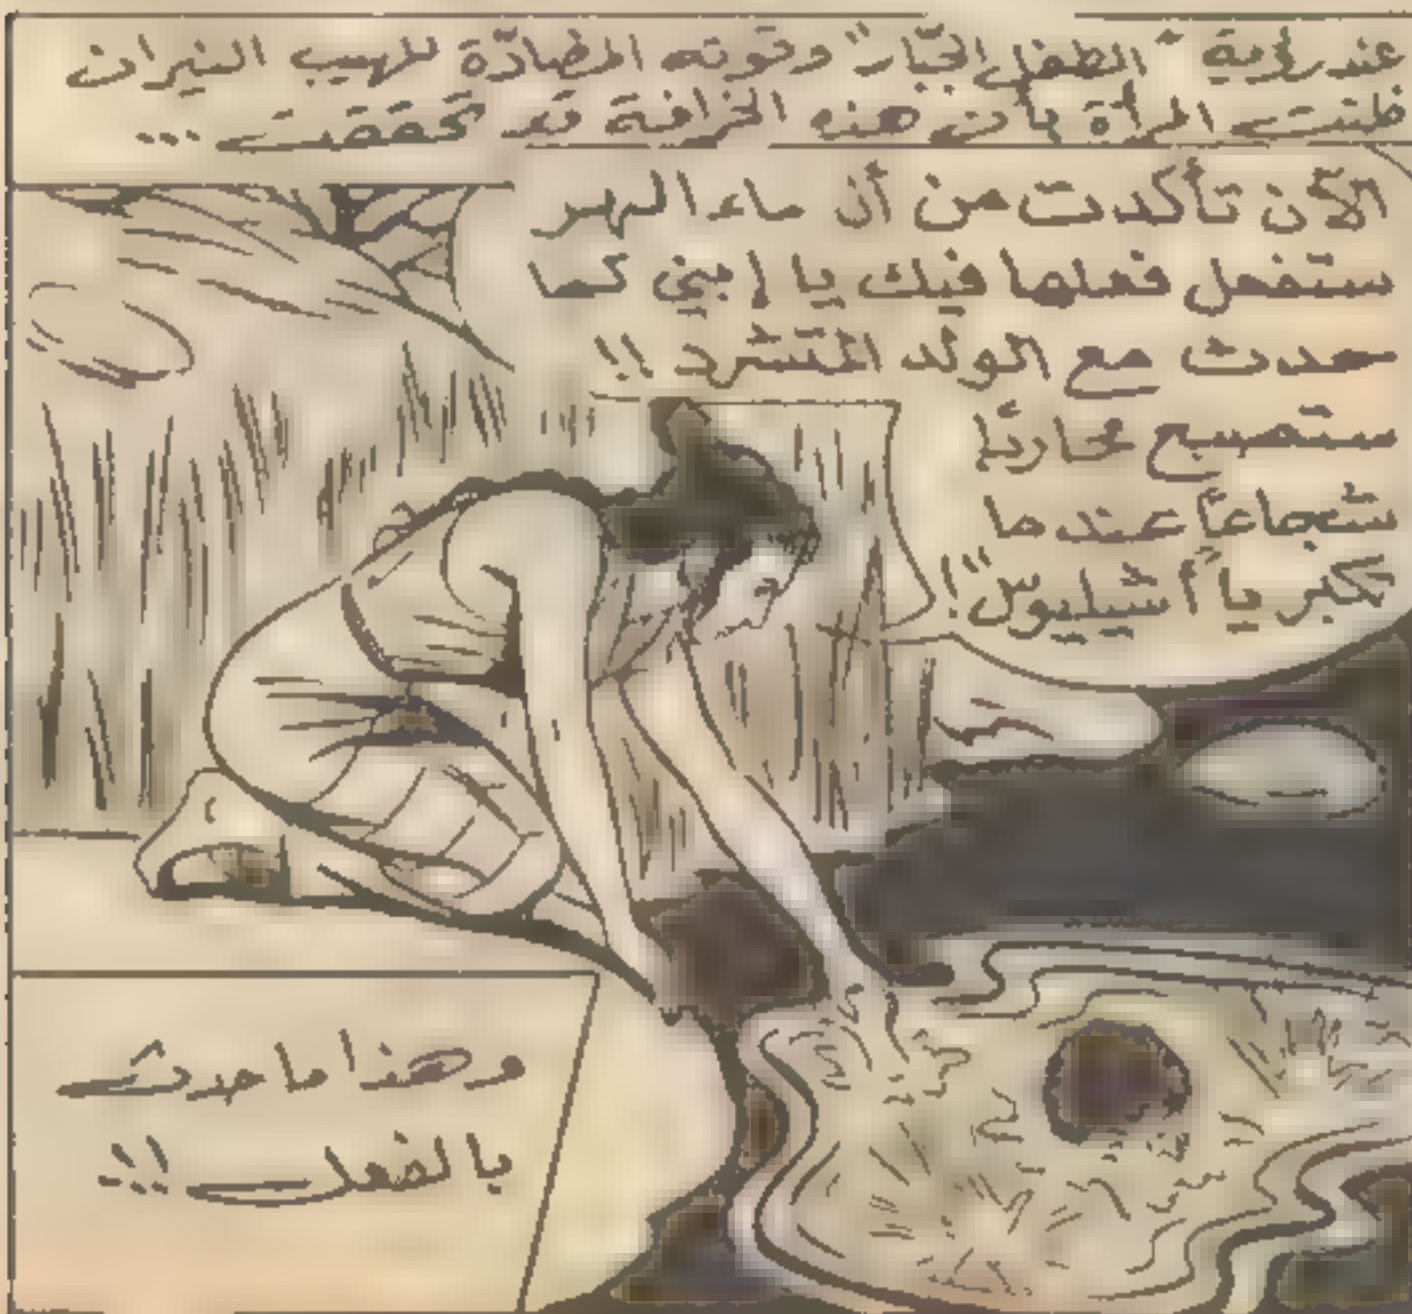 عند رؤية "الطفل الجبّار" وقوته المضادّة للهيب النيران
ظنت المرأة بأن هذه الخرافة قد تحققت ...
الآن تأكدت من أن ماء النهر
ستفعل فعلها فيك يا إبني كما
حدث مع الولد المتشرد !!
ستصبح محاربًا
شجاعاً عندما
تكبر يا "أشيليوس"!
وهذا ما حدث
بالفعل !!..